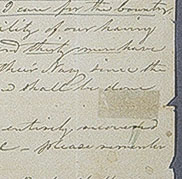 I care for the country
ility of our having
and that men have
their Navy since the
d shall be done
entirely recovered
e – please remember